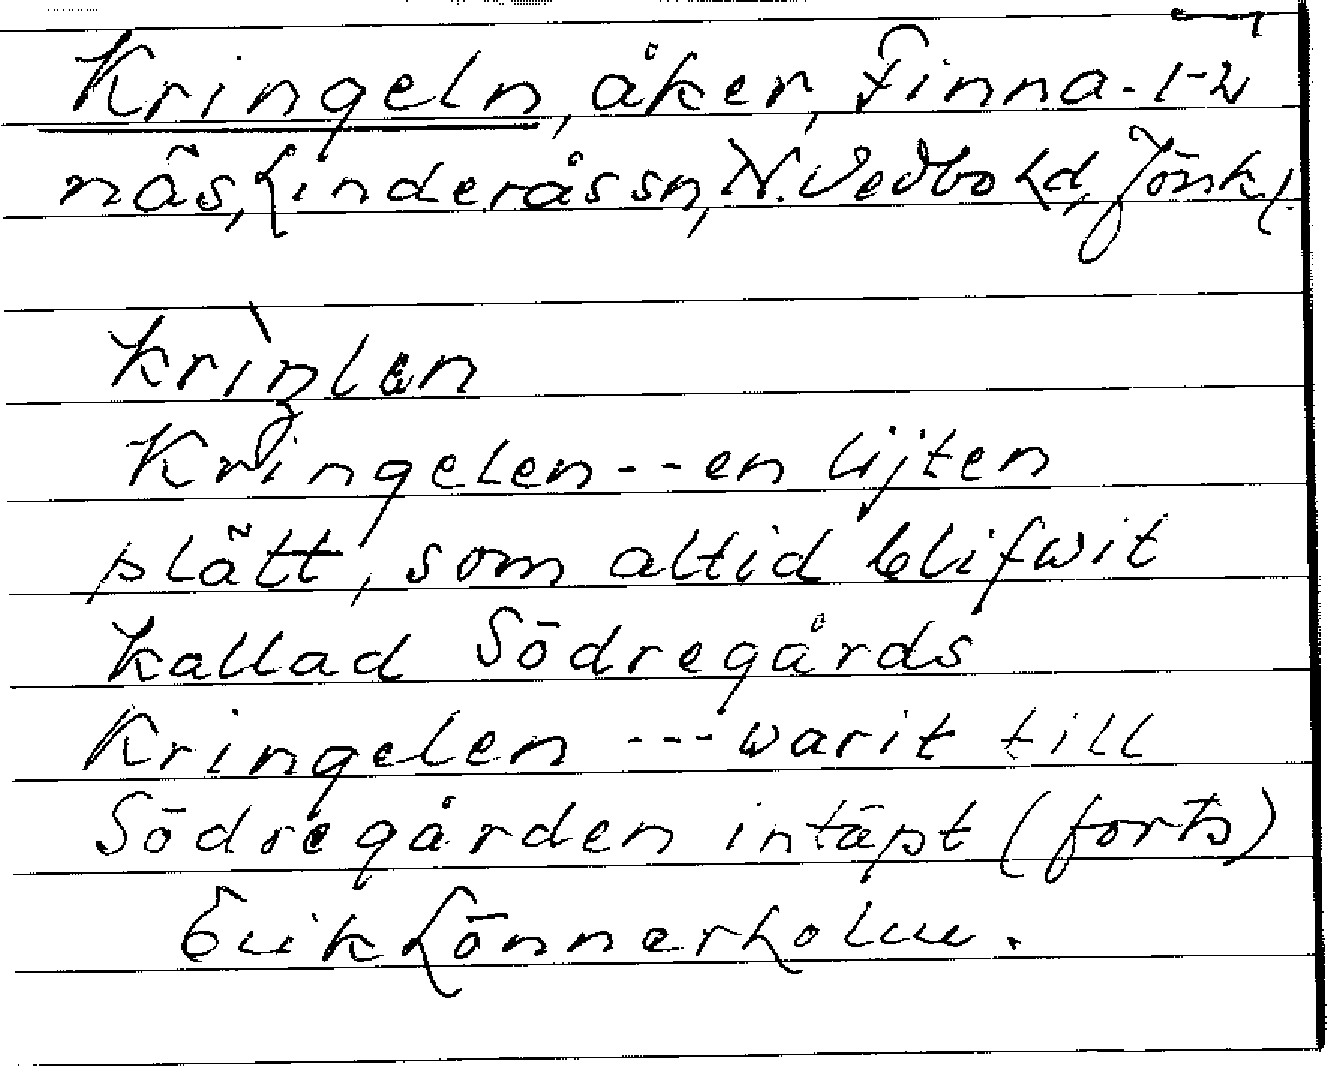 Kringeln, åker, Finna- 1-2
näs, Linderås sn, N. Vedbo hd, Jönk l.
krìŋlan
Kringelen -- en lijten
plätt, som altid blifwit
kallad Södregårds
Kringelen --- warit till
Södregården intäpt (forts)
Erik Lönnerholm.